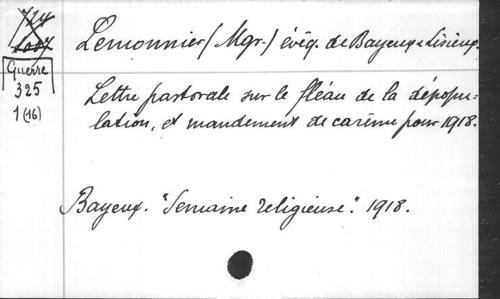 Lemonnier (Mgr.) évêq. de Bayeux & Lisieux.
Guerre
325
1 (16)
Lettre pastorale sur le fléau de la dépopu=
lation, et mandement de carême pour 1918.
Bayeux. "Semaine religieuse". 1918.